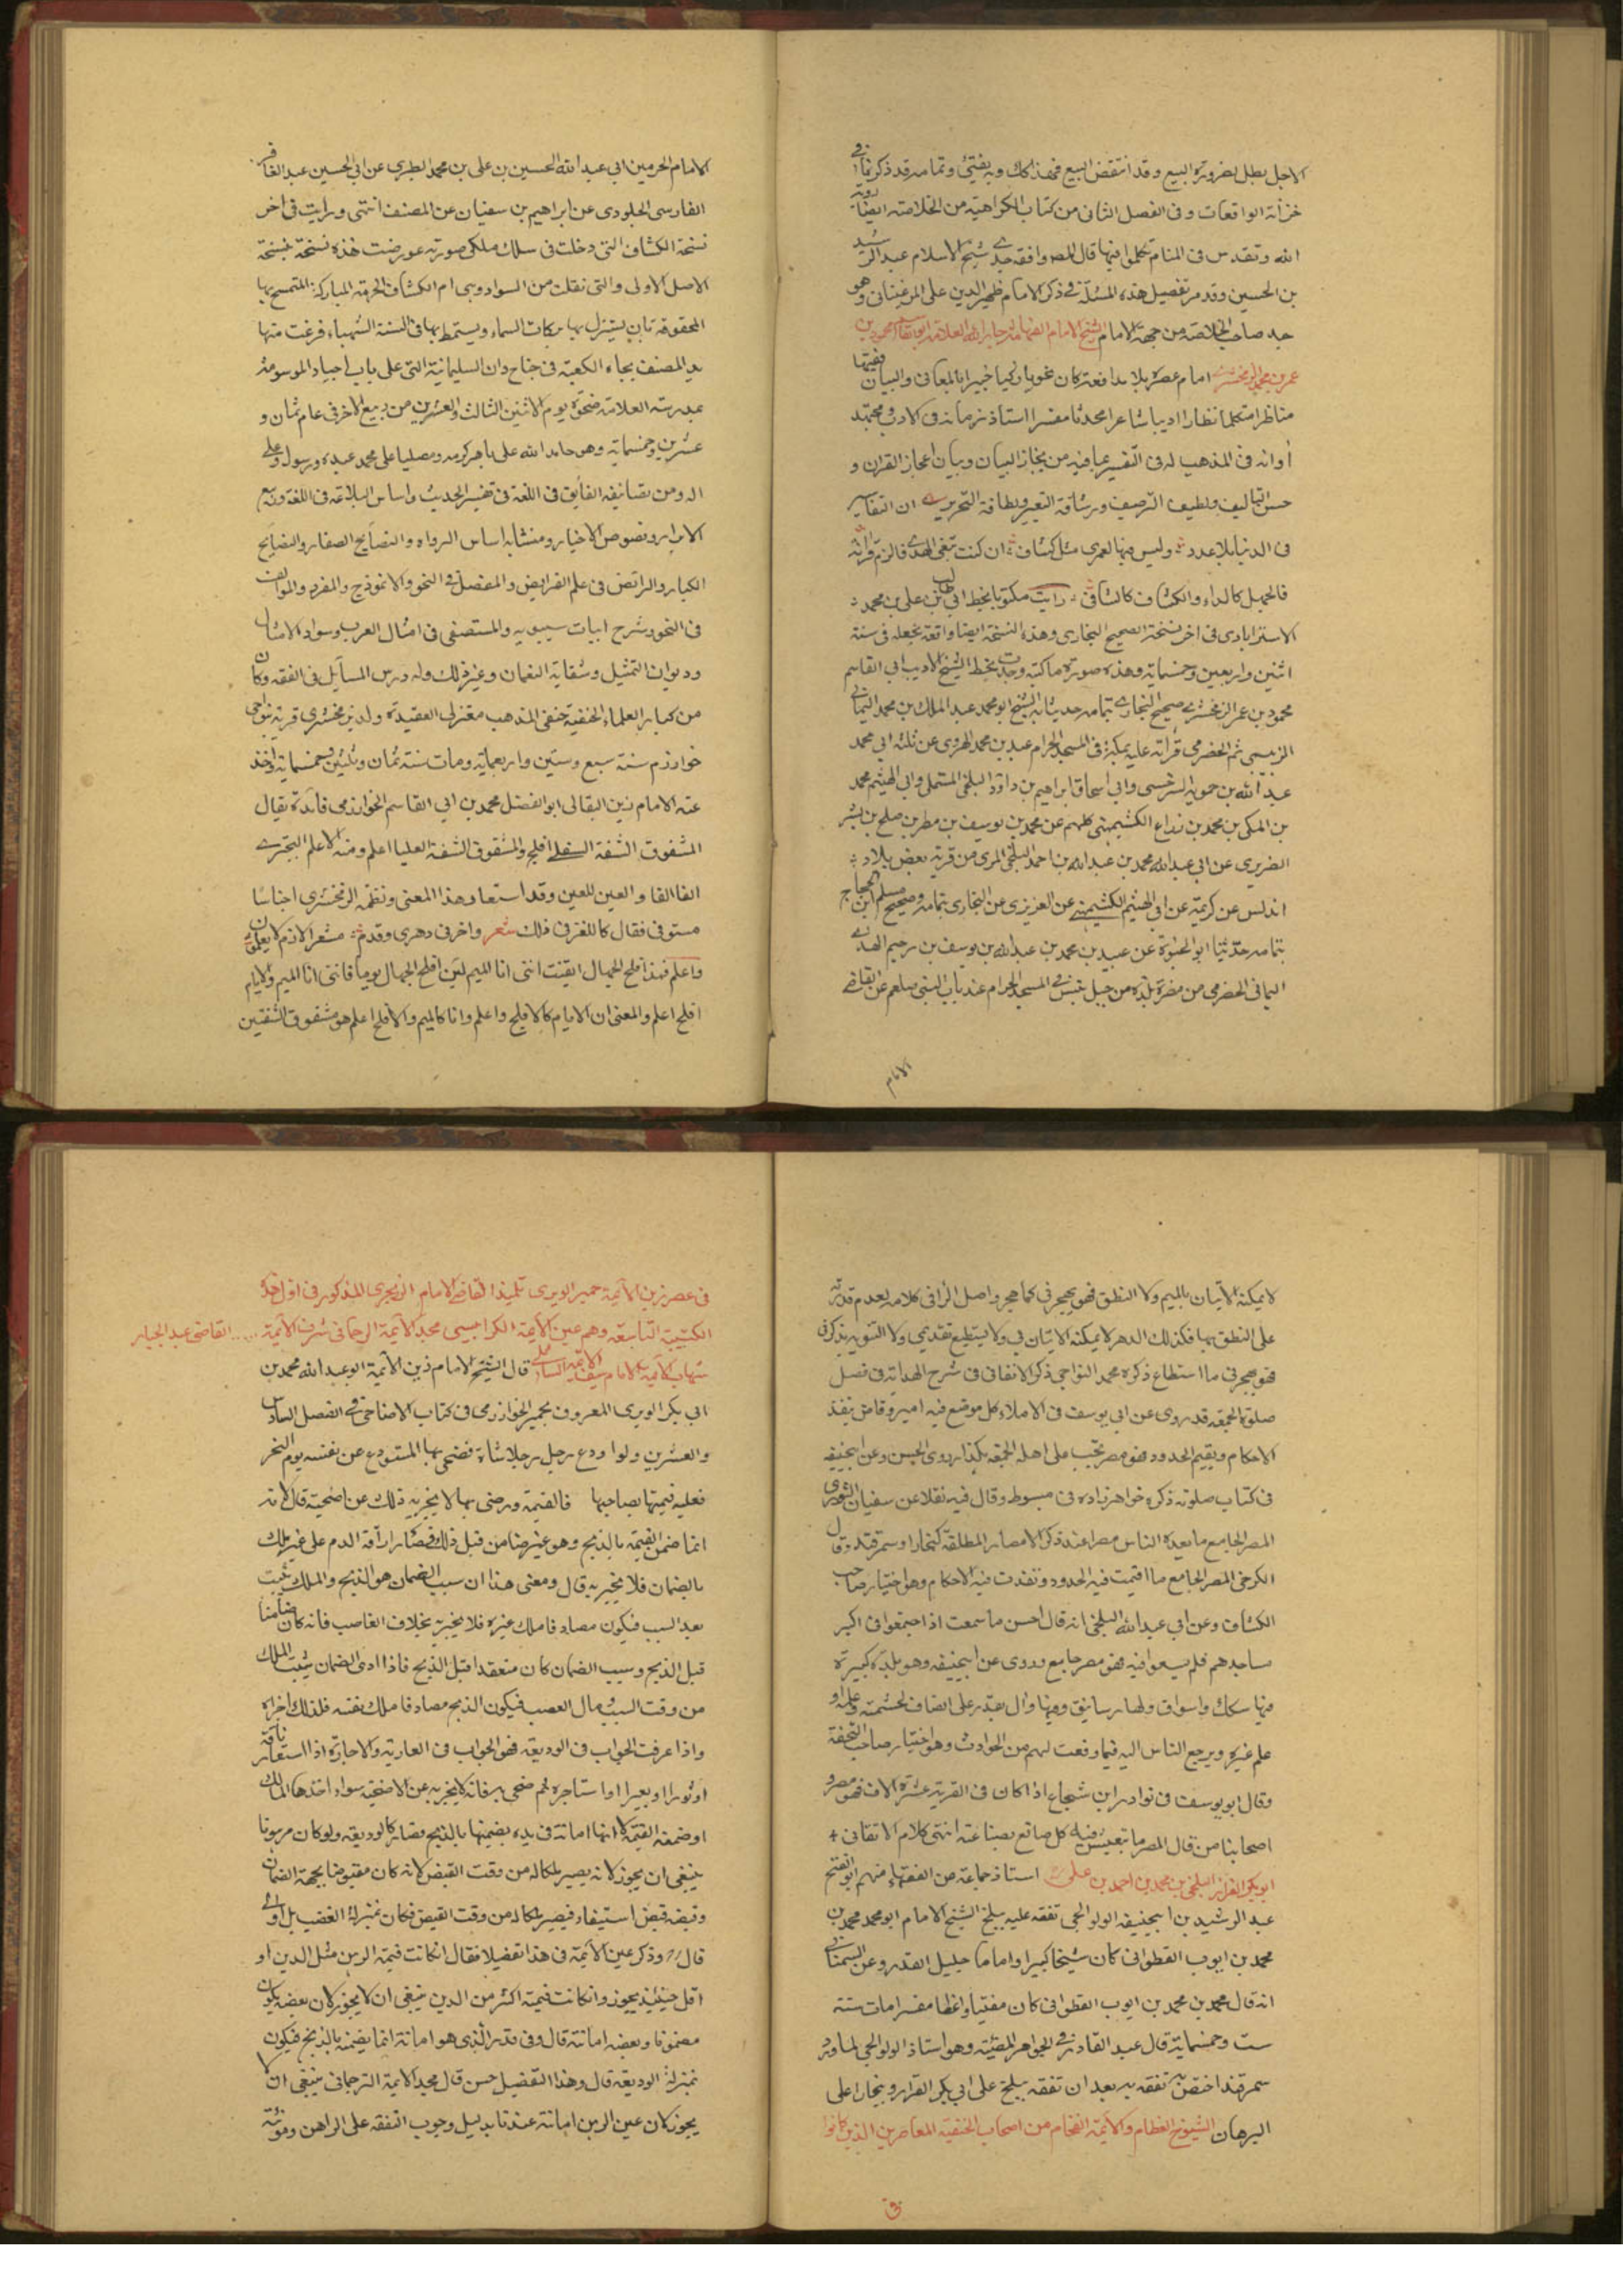 الاجل بطل بضرورة البيع وقد انتقض البيع فهذا كك وبه يفتى وتمامه قد ذكرنا في
خزانة الواقعات وفى الفصل الثانى من كتاب الكراهية من الخلاصة ايضا رؤية
الله وتقدس فى المنام تكلموا فيها قال المص وافقه جدى شيخ الاسلام عبد الرشيد
بن الحسين وقد مر تفصيل هذه المسئلة فى ذكر الامام ظهير الدين على المرغينانى وهو
جد صاحب الخلاصة من جهة الامام الشيخ الامام العلامة جار الله العلامة ابو القاسم محمود بن
عمر بن محمد الزمخشرى امام عصره بلا مدافعة كان نحويا زكيا خبيرا بالمعانى والبيان فقيها
مناظرا متكلما نظارا اديبا شاعرا محدثا مفسرا استاذ زمانه فى الادب ومجتهد
أوانه فى المذهب له فى التفسير عجايب من مجاز البيان وبيان اعجاز القران و
حسن التاليف ولطيف الترصيف ورشاقة التعبير ولطافة التحرير ان التفاسير
فى الدنيا بلا عدد وليس فيها لعمرى مثل كشاف ان كنت تبغى الهدى فالزم قرائته
فالجهل كالداء والكشاف كالشافى رايت مكتوبا بخط ابى طالب بن على بن محمد
الاسترابادى فى اخر نسخة الصحيح البخارى وهذه النسخة ايضا واقعة بخطه فى سنة
اثنين واربعين وخمسماية وهذه صورة ما كتبه وجدت بخط الشيخ الاديب ابى القاسم
محمود بن عمر الزمخشرى صحيح البخارى بتمامه حدثنا به الشيخ ابو محمد عبد الملك بن محمد اليمانى
الزبيبى ثم الحضرمى قرأته عليه بمكة فى المسجد الحرام عبد بن محمد الهروى عن ثلثة ابى محمد
عبد الله بن حمويه السرخسى وابى اسحاق ابراهيم بن داؤد البلخى المستملى وابى الهيثم محمد
بن المكى بن محمد بن زراع الكشميهنى كلهم عن محمد بن يوسف بن مطر بن صلح بن بشر
الضريرى عن ابى عبد الله محمد بن عبد الله بن احمد البلخى المرى من قرية بعض بلاد
اندلس عن كريمة عن ابى الهيثم الكشيمهنى عن العزيزى عن البخارى بتمامه وصحيح مسلم ابن الحجاج
بتمامه حدثنا ابو الحيوة عن عبيد بن محمد بن عبد الله بن يوسف بن رحيم الهدى
اليمانى الحضرمى من مضرة بلدة من جبل تبيس فى المسجد الحرام عند باب النبى صلعم عن القاضى
الامام
الامام الحرمين ابى عبد الله الحسين بن على بن محمد الطبرى عن ابى الحسين عبد الغافر
الفارسى الجلودى عن ابراهيم بن سفيان عن المصنف انتهى ورايت فى اخر
نسخة الكشاف التى دخلت فى سلك ملكى صورته عورضت هذه نسخة بنسخة
الاصل الاولى والتى نقلت من السواد وهى ام الكشاف الحرمة المباركة المتمسح بها
المحقوقة بان يستنزل بها بركات السماء ويستمطر بها فى السنة الشهباء فرغت منها
يد المصنف بجاه الكعبة فى جناح دار السليمانية التى على باب اجياد الموسومة
بمدرسة العلامة ضحوة يوم الاثنين الثالث والعشرين من ربيع الاخر فى عام ثمان و
عشرين وخمسماية وهو حامد الله على باهر كرمه ومصليا على محمد عبده ورسوله وعلى
اله ومن تصانيفه الفايق فى اللغة فى تفسير الحديث واساس البلاغة فى اللغة وربيع
الابرار ونصوص الاخبار ومتشابه اساس الرواه والنصايح الصغار والنصايح
الكبار والرائض فى علم الفرايض والمفصل فى النحو والانموذج والمفرد والمؤلف
فى النحو وشرح ابيات سيبويه والمستصفى فى امثال العرب وسواد الامثال
وديوان التمثيل وشقايق النعمان وغير ذلك وله درس المسائل فى الفقه وكان
من كبار العلماء الحنفية حنفى المذهب معتزلى العقيدة ولد بزمخشرى قرية بنواحى
خوارزم سنة سبع وستين واربعماية ومات سنة ثمان وثلثين وخمسماية واخذ
عنه الامام زين البقالى ابو الفضل محمد بن ابى القاسم الخوارزمى فائدة يقال
المشقوق الشفة السفلى افلح والمشقوق الشفة العليا اعلم ومنه الاعلم البحترى
الفا الفا والعين للعين وقد استعار هذا المعنى ونظمه الزمخشرى اجناسا
مستوفى فقال كاللغز فى ذلك شعر واخرنى دهرى وقدم معشرا لانهم لا يعلمون
واعلم فمذ افلح الجهال ايقنت اننى انا الميم لئن افلح الجهال يوما فاننى انا الميم والايام
افلح اعلم والمعنى ان الايام كالافلح واعلم وانا كالميم والافلح اعلم هو مشقوق الشفتين
لا يمكنه الاتيان بالميم ولا النطق فهو يهجرنى كما هجر واصل الرا فى كلامه لعدم قدرته
على النطق بها فكذلك الدهر لا يمكنه الاتيان بى ولا يستطيع تقديمى ولا التنويه بذكرى
فهو يهجرنى ما استطاع ذكره محمد النواجى ذكر الاتقانى فى شرح الهداية فى فصل
صلوة الجمعة قد روى عن ابى يوسف فى الاملاء كل موضع فيه امير وقاض ينفذ
الاحكام ويقيم الحدود فهو مصر تجب على اهله الجمعة هكذا روى الحسن وعن ابيحنيفة
فى كتاب صلوته ذكره خواهر زاده فى مبسوطه وقال فيه نقلا عن سفيان الثورى
المصر الجامع ما يعده الناس مصرا عند ذكر الامصار المطلقة كبخارا وسمرقند وقال
الكرخى المصر الجامع ما اقيمت فيه الحدود ونفذت فيه الاحكام وهو اختيار صاحب
الكشاف وعن ابى عبد الله البلخى انه قال احسن ما سمعت اذا اجتمعوا فى اكبر
مساجدهم فلم يسعوا فيه فهو مصر جامع وروى عن ابيحنيفة وهو بلدة كبيرة
فيها سكك واسواق ولها رساتيق وفيها وال يقدر على انصاف لحشمته وعلمه او
علم غيره ويرجع الناس اليه فيما وقعت لهم من الحوادث وهو اختيار صاحب التحفة
وقال ابو يوسف فى نوادر ابن شجاع اذا كان فى القرية عشرة الاف فهو مصر و
اصحابنا من قال المصر ما يتعيش فيه كل صانع بصناعته انتهى كلام الاتقانى
ابو بكر القزاز البلخى بن محمد بن احمد بن على استاذ جماعة من الفقهاء منهم ابو الفتح
عبد الرشيد بن ابيحنيفة الولوالجى تفقه عليه ببلخ الشيخ الامام ابو محمد محمد بن
محمد بن ايوب القطوانى كان شيخا كبيرا واماما جليل القدر وعن السمعانى
انه قال محمد بن محمد بن ايوب القطوانى كان مفتيا واعظا مفسرا مات سنة
ست وخمسماية قال عبد القادر فى الجواهر المضيئة وهو استاذ الولوالجى لما ورد
سمرقند اختص به تفقه به بعد ان تفقه ببلخ على ابى بكر القزاز وببخارا على
البرهان الشيوخ العظام والائمة الفخام من اصحاب الحنفية المعاصرين الذين كانوا
فى
فى عصر زين الائمة حمير الوبرى تلميذ القاضى الامام الزنجرى المذكور فى اول هذه
الكتيبة التاسعة وهم عين الائمة الكرابيسى مجد الائمة الترجمانى شرف الائمة القاضى عبد الجبار
شهاب الائمة الامامى سيف الائمة السائلى قال الشيخ الامام زين الائمة ابو عبد الله محمد بن
ابى بكر الوبرى المعروف بحمير الخوارزمى فى كتاب الاضاحى فى الفصل السادس
والعشرين ولو اودع رجل رجلا شاة فضحى بها المستودع عن نفسه يوم النحر
فعليه قيمتها بصاحبها فالقيمة ورضى بها لا يجزيه ذلك عن اضحيته قال لانه
انما ضمن القيمة بالذبح وهو غير ضامن قبل ذلك فصار اراقة الدم على غير ملك
بالضمان فلا يجزيه قال ومعنى هذا ان سبب الضمان هو الذبح والملك يثبت
بعد السبب فيكون مصادفا ملك غيره فلا يجزيه بخلاف الغاصب فانه كان ضامنا
قبل الذبح وسبب الضمان كان منعقدا قبل الذبح فاذا ادى الضمان يثبت الملك
من وقت السبب مال الغصب فيكون الذبح مصادفا ملك نفسه فلذلك اجزاه
واذا عرفت الجواب فى الوديعة فهو الجواب فى العارية والاجارة اذا استعار ناقة
او ثورا او بعيرا او استاجره ثم ضحى به فانه لا يجزيه عن الاضحية سواء اخذها المالك
او ضمنه القيمة لانها امانة فى يده يضمنها بالذبح فصار كالوديعة ولو كان مرهونا
ينبغى ان يجوز لانه يصير ملكا له من وقت القبض لانه كان مقبوضا بجهة الضمان
وقبضه قبض استيفاء فيصير ملكا له من وقت القبض فكان بمنزلة الغصب بل اولى
قال وذكر عين الائمة فى هذا تفصيلا فقال ان كانت قيمة الرهن مثل الدين او
اقل حينئذ يجوز وان كانت قيمته اكثر من الدين ينبغى ان لا يجوز لان بعضه يكون
مضمونا وبعضه امانة قال وفى قدر الذى هو امانة انما يضمنه بالذبح فيكون
بمنزلة الوديعة قال وهذا التفصيل حسن قال مجد الائمة الترجمانى ينبغى ان لا
يجوز لان عين الرهن امانة عندنا بدليل وجوب النفقة على الراهن ومؤنة